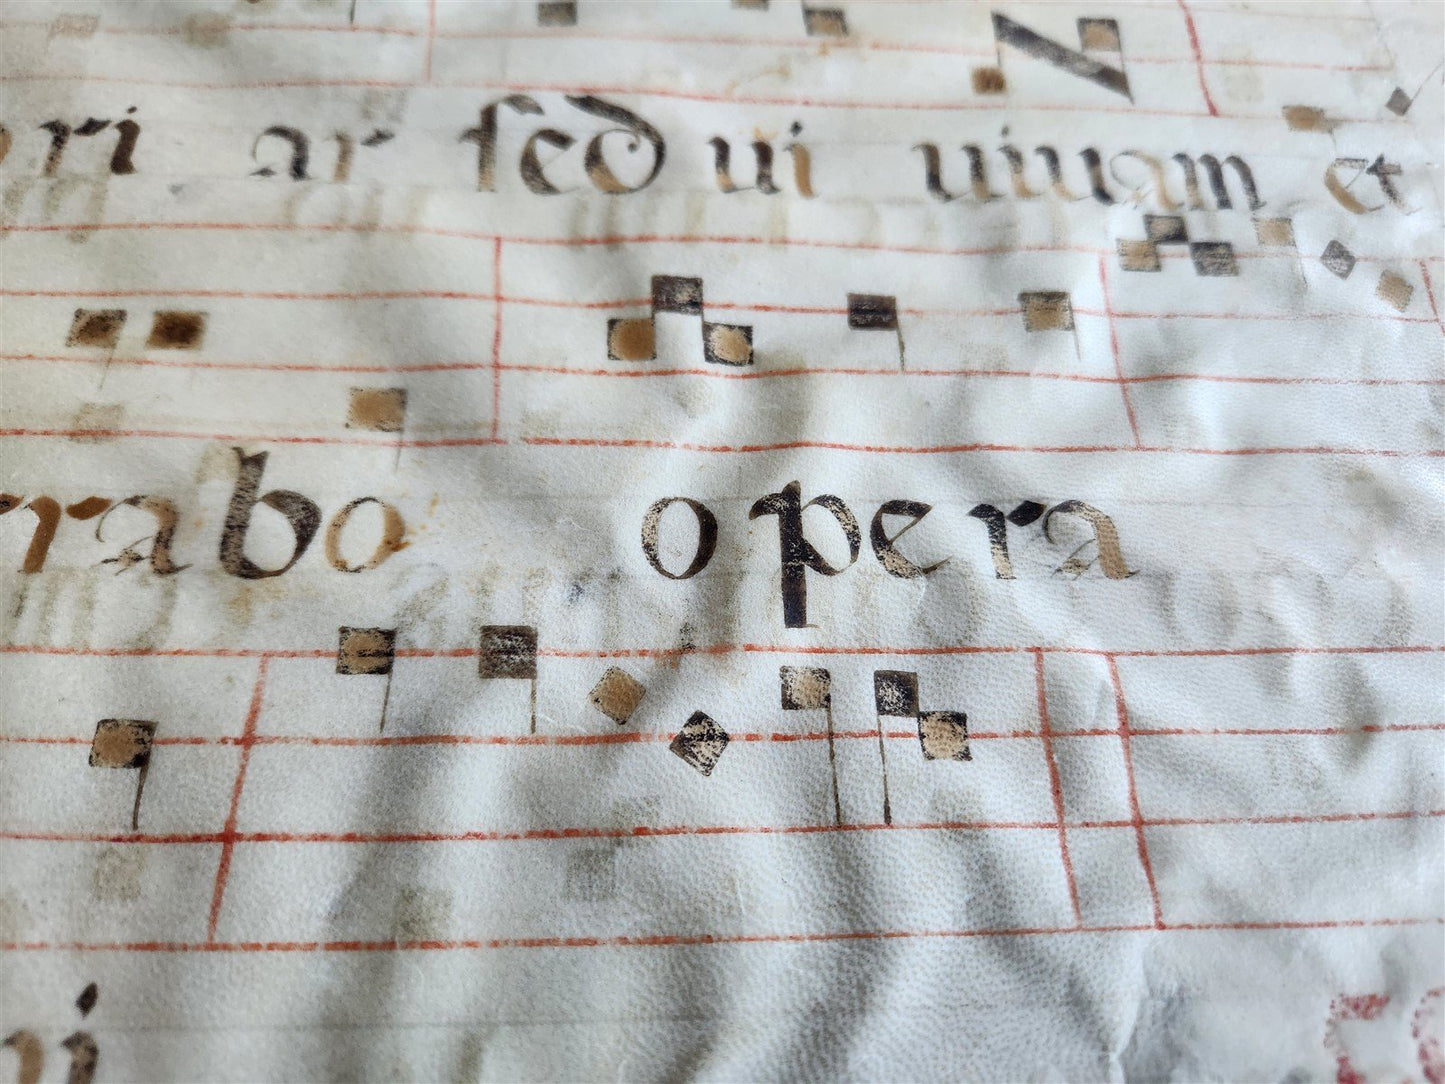 ri ar sed ui uiuam et
rabo opera